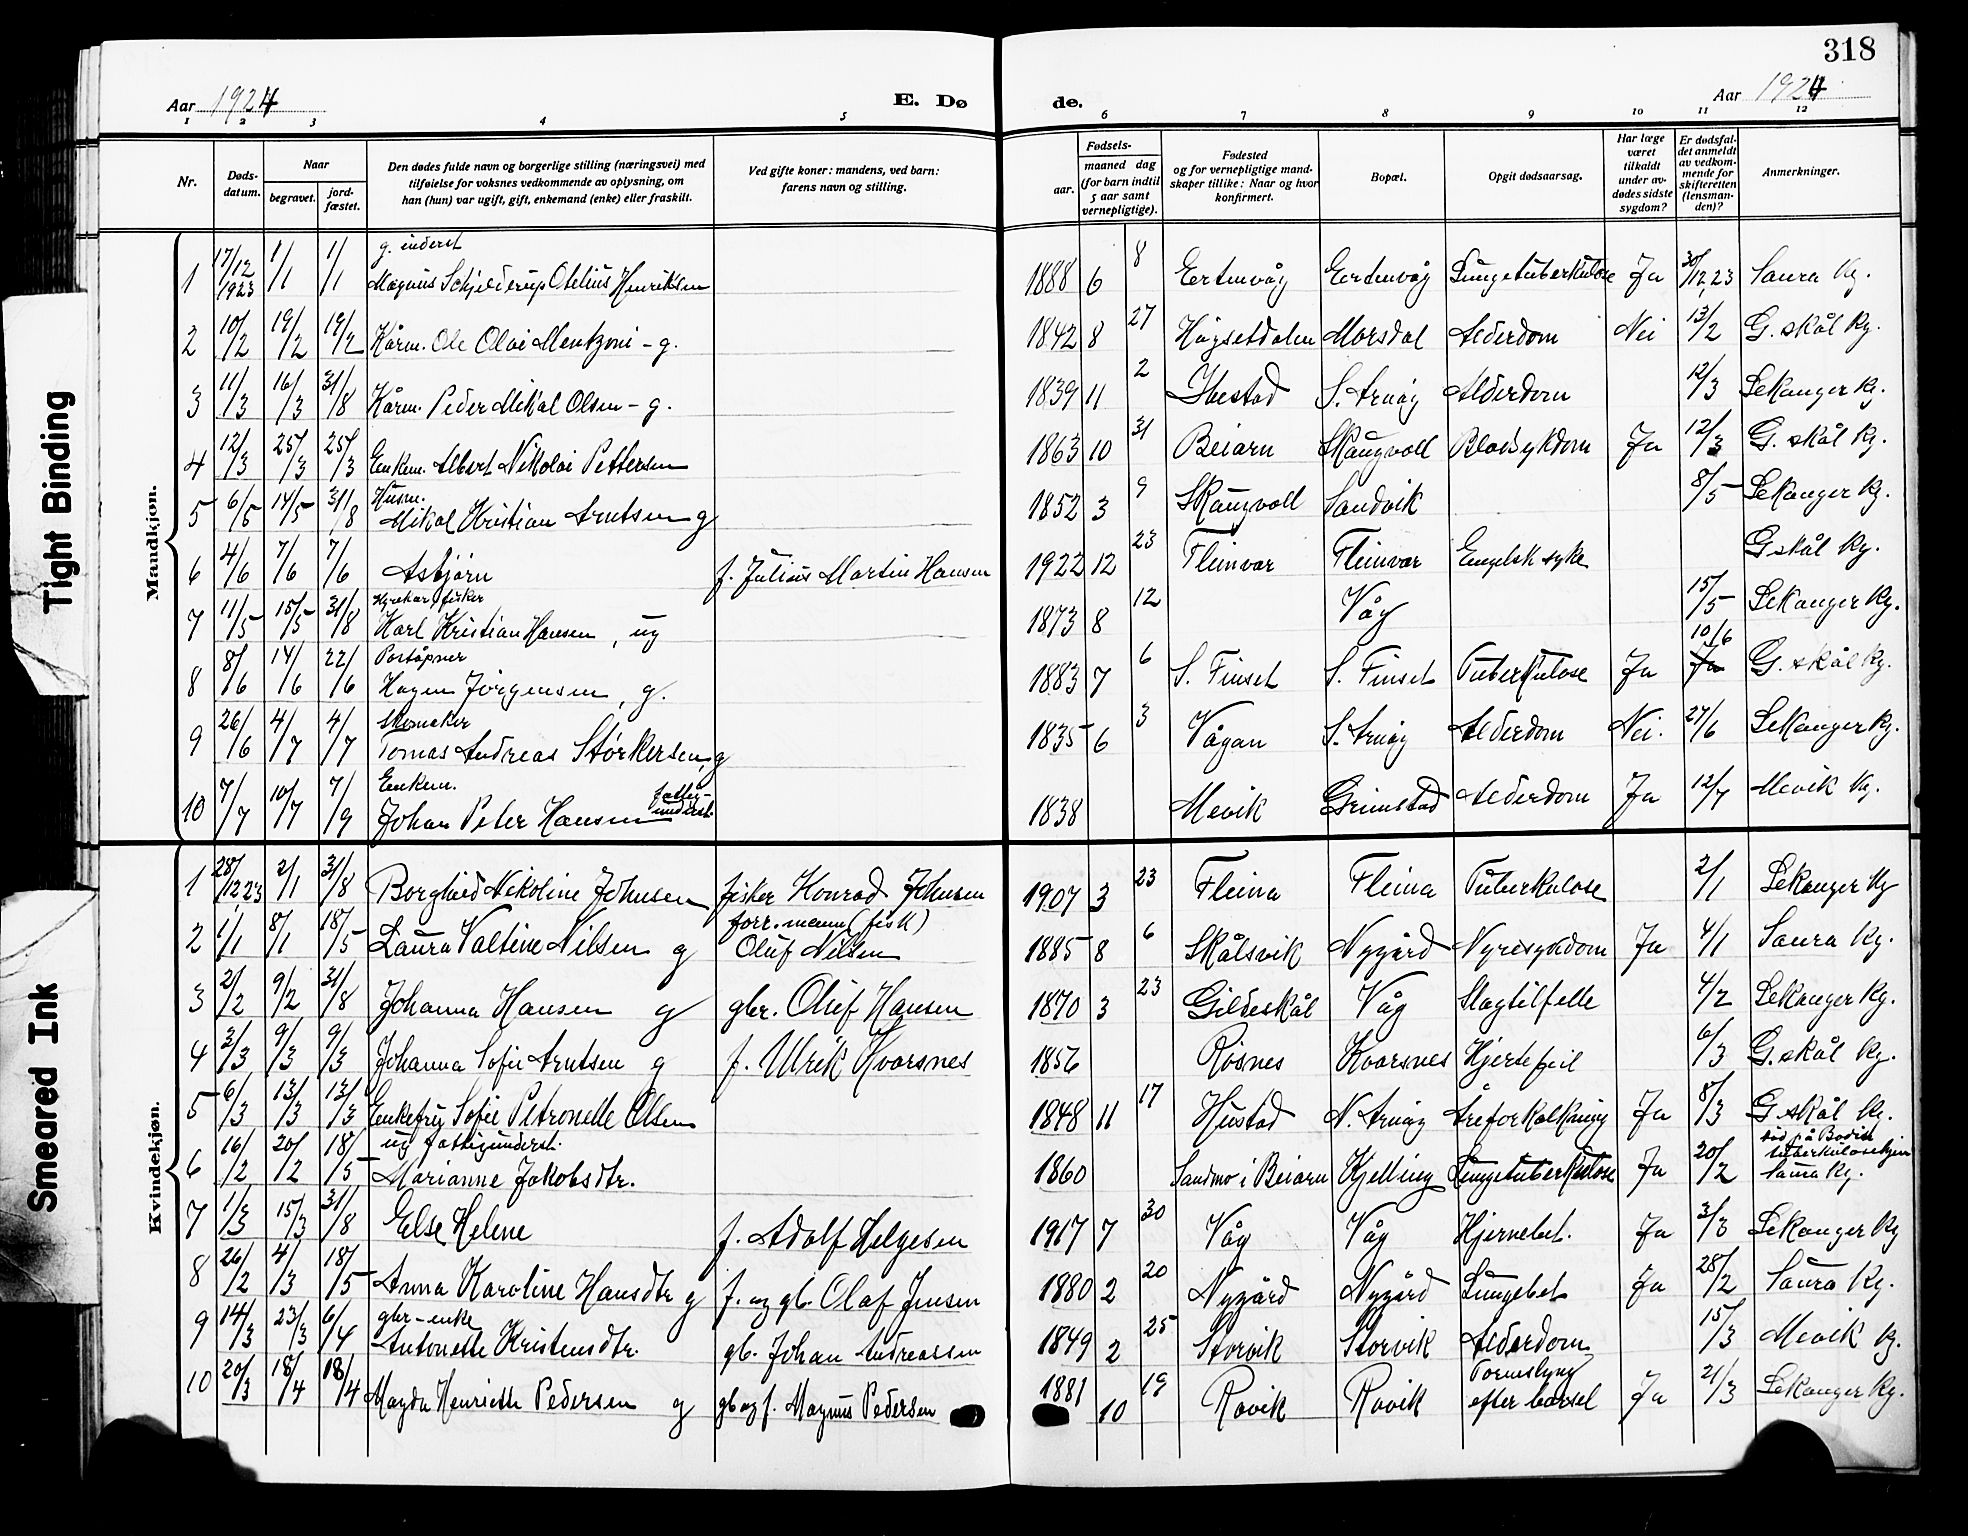 318
Aar 1924
E. Dø de.
Aar 1924
1 2 3 4 5 6 7 8 9 10 11 12
Nr.
Døds-datum.
Naar
begravet.
jord-fæstet.
Den dødes fulde navn og borgerlige stilling (næringsvei) med
tilføielse for voksnes vedkommende av oplysning, om
han (hun) var ugift, gift, enkemand (enke) eller fraskilt.
Ved gifte koner: mandens, ved barn:
farens navn og stilling.
Fødsels-
aar.
maaned dag
(for barn indtil
5 aar samt
vernepligtige).
Fødested
og for vernepligtige mand-
skaper tillike: Naar og hvor
konfirmert.
Bopæl.
Opgit dødsaarsag.
Har læge
været
tilkaldt
under av-
dødes sidste
sygdom?
Er dødsfal-
det anmeldt
av vedkom-
mende for
skifteretten
(lensman-
den)?
Anmerkninger.
Mandkjøn.
g. inderst
1 17/12 1923 1/1 1/1 Magnus Schjelderup Otelius Henriksen 1888 6 8 Ertenvåg Ertenvåg Lungetuberkulose Ja 30/12 23 Saura kg.
2 10/2 19/2 19/2 Kårm. Ole Olai Mentzoni - g. 1842 8 27 Hågsetdalen Morsdal Alderdom Nei 13/2 G. skål kg.
3 11/3 16/3 31/8 Kårm. Peder Mikal Olsen - g. 1839 11 2 Ibestad S. Arnøy Alderdom 12/3 Lekanger kg.
4 12/3 25/3 25/3 Enkem. Albert Nikolai Pettersen 1863 10 31 Beiarn Skaugvoll Blodsykdom Ja 12/3 G. skål kg.
Husm.
5 6/5 14/5 31/8 Mikal Kristian Arntsen g 1852 3 9 Skaugvoll Sandvik 8/5 Lekanger kg.
6 4/6 7/6 7/6 Asbjørn f. Julius Martin Hansen 1922 12 23 Fleinvær Fleinvær Engelsk syke Gskål kg.
fisker
7 11/5 15/5 31/8 Karl Kristian Hansen, ug 1873 8 12 Våg 15/5 Lekanger kg.
Poståpner
8 8/6 14/6 22/6 Hagen Jørgensen, g. 1883 7 6 S. Finset S. Finset Tuberkulose Ja 10/6 G. skål kg.
Skomaker
9 26/6 4/7 4/7 Tomas Andreas Størkersen, g 1835 6 3 Vågan S. Arnøy Alderdom Nei. 27/6 Lekanger kg.
Enkem.
10 7/7 10/7 7/9 Johan Peter Hansen fattig-underst. 1838 Mevik Grimstad Alderdom Ja 12/7 Mevik kg.
Kvindekjøn.
1 28/12 23 2/1 31/8 Borghild Nikoline Johnsen fisker Konrad Johnsen 1907 3 23 Fleina Fleina Tuberkulose 2/1 Lekanger kg
forr. mann (fisk)
2 1/1 8/1 18/5 Laura Valtine Nilsen g Oluf Nilsen 1885 8 6 Skålsvik Nygård Nyresykdom Ja 4/1 Saura kg.
3 2/2 9/2 31/8 Johanna Hansen g gbr. Oluf Hansen 1870 3 23 Gildeskål Våg Slagtilfelle 4/2 Lekanger kg.
4 3/3 9/3 9/3 Johanna Sofie Arntsen g f. Ulrik Kvarsnes 1856 Røsnes Kvarsnes Hjertefeil 6/3 G. skål kg.
5 6/3 13/3 13/3 Enkefru Sofie Petronelle Olsen 1848 11 17 Hustad N. Arnøy Åreforkalkning Ja 8/3 G. skål kg.
ug fattigunderst.
6 16/2 20/2 18/5 Marianne Jakobsdtr. 1860 Sandmo i Beiarn Kjelling Lungetuberkulose Ja 20/2 død på Bodin tuberkulosehjem Saura kg.
7 1/3 15/3 31/8 Else Helene f. Adolf Helgesen 1917 7 30 Våg Våg Hjernebet. Ja 3/3 Lekanger kg
8 26/2 4/3 18/5 Anna Karoline Hansdtr g f. og gb. Olaf Jensen 1880 2 20 Nygård Nygård Lungebet. Ja 28/2 Saura kg.
gbr-enke
9 14/3 23/3 6/4 Antonette Kristensdtr. gb. Johan Andreassen 1849 2 25 Storvik Storvik Alderdom 15/3 Mevik kg.
10 20/3 18/4 18/4 Magda Henriette Pedersen g gb og f. Magnus Pedersen 1881 10 19 Røvik Røvik efter barsel Ja 21/3 Lekanger kg.
Tight Binding
Smeared Ink